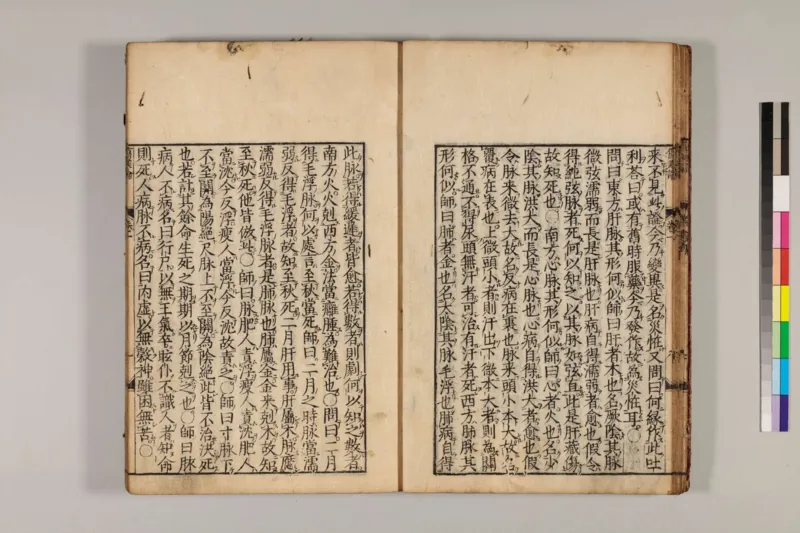 來不見此證今乃變異是名災怪又問曰何緣作此吐
利答曰或有舊時服藥今乃發作故為災怪耳〇
問曰東方肝脉其形何似師曰肝者木也名厥陰其脉
微弦濡弱而長是肝脉也肝病自得濡弱者愈也假令
得純弦脉者死何以知之以其脉如弦直此是肝藏傷
故知死也〇南方心脉其形何似師曰心者火也名少
陰其脉洪大而長是心脉也心病自得洪大者愈也假
令脉來微去大故名反病在裏也脉來頭小本大故名
覆病在表也上微頭小者則汗出下微本大者則為關
格不通不得尿頭無汗者可治有汗者死西方肺脉其
形何似師曰肺者金也名太陰其脉毛浮也肺病自得
此脉若得緩遲者皆愈若得數者則劇何以知之數者
南方火火剋西方金法當癰腫為難治也〇問曰二月
得毛浮脉何以處言至秋當死師曰二月之時脉當濡
弱反得毛浮者故知至秋死二月肝用事肝屬木脉應
濡弱反得毛浮脉者是肺脉也肺屬金金來剋木故知
至秋死他皆倣此〇師曰脉肥人責浮瘦人責沈肥人
當沈今反浮瘦人當浮今反沈故責之〇師曰寸脉下
不至關為陽絕尺脉上不至關為陰絕此皆不治決死
也若計其餘命生死之期期以月節剋之也〇師曰脉
病人不病名曰行尸以無王氣卒眩仆不識人者短命
則死人病脉不病名曰內虛以無穀神雖困無苦〇